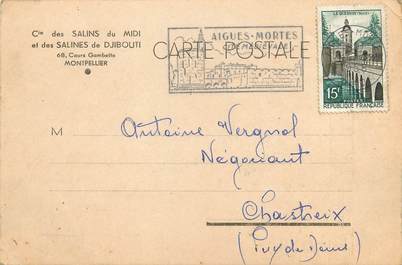 Cie des SALINS du MIDI
et des SALINES de DJIBOUTI
68, Cours Gambetta
MONTPELLIER
AIGUES-MORTES
CITÉ MÉDIÉVALE
CARTE POSTALE
LE QUESNOY (NORD)
15F
REPUBLIQUE FRANÇAISE
M
Antoine Vergnol
Négociant
Chastreix
(Puy de Dôme)